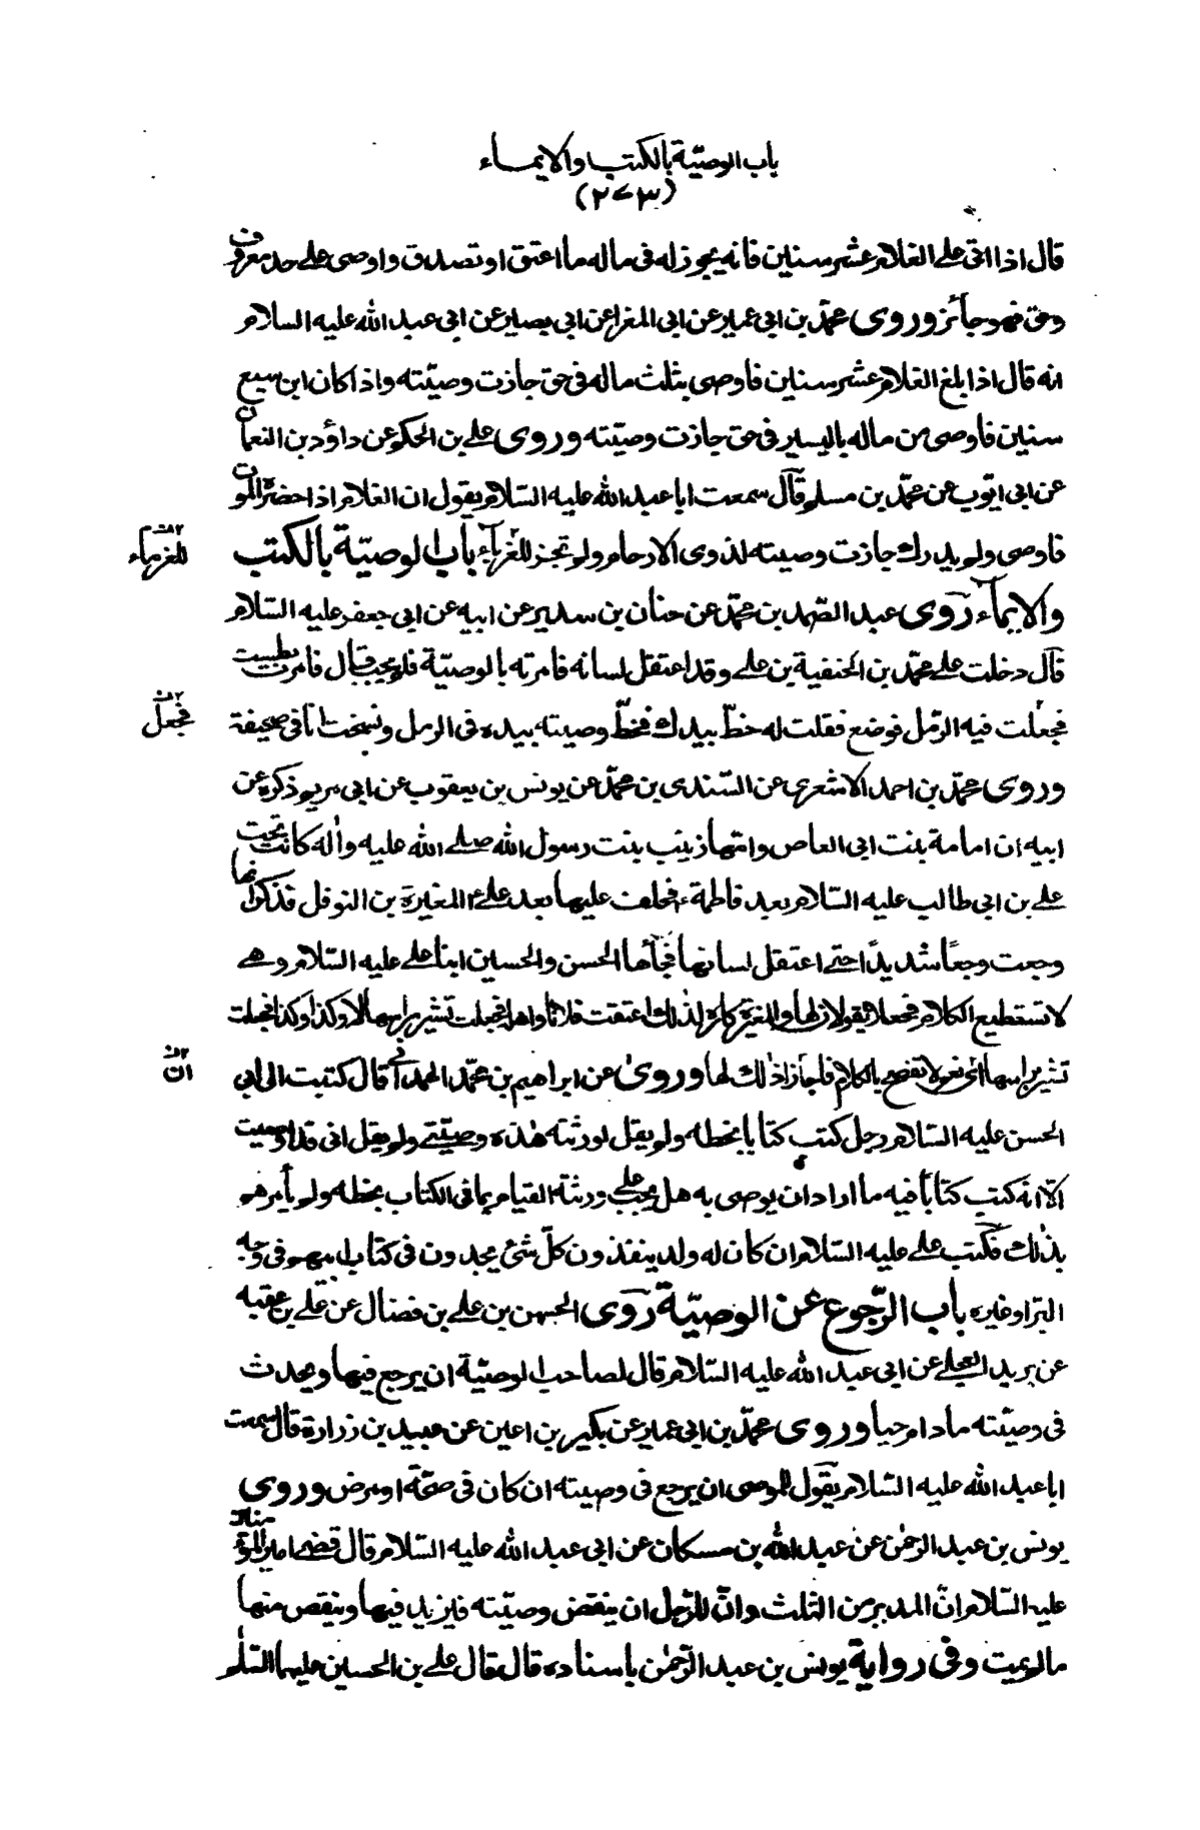 باب الوصيّة بالكتب والايماء
(٢٧٣)
قال اذا اتى على الغلام عشر سنين فانه يجوز له فى ماله ما اعتق او تصدق واوصى على حد معروف
وحق فهو جائز وروى محمّد بن ابى عمير عن ابى المغرا عن ابى بصير عن ابى عبد الله عليه السلام
انه قال اذا بلغ الغلام عشر سنين فاوصى بثلث ماله فى حق جازت وصيّته واذا كان ابن سبع
سنين فاوصى من ماله باليسير فى حق جازت وصيّته وروى على بن الحكم عن داؤد بن النعمان
عن ابى ايّوب عن محمّد بن مسلم قال سمعت ابا عبد الله عليه السّلام يقول ان الغلام اذا حضره الموت
فاوصى ولم يدرك جازت وصيته لذوى الارحام ولم تجز للغرباء باب الوصيّة بالكتب
للغرماء
والايماء روى عبد الصّمد بن محمّد عن حنان بن سدير عن ابيه عن ابى جعفر عليه السّلام
قال دخلت على محمّد بن الحنفية بن على وقد اعتقل لسانه فامرته بالوصيّة فلم يجب قال فامرت بطست
فجعلت فيه الرّمل فوضع فقلت له خطّ بيدك فخطّ وصيته بيده فى الرمل ونسخت انا فى صحيفة
فجعل
وروى محمّد بن احمد الاشعرى عن السّندى بن محمّد عن يونس بن يعقوب عن ابى مريم ذكره عن
ابيه ان امامة بنت ابى العاص وامّها زينب بنت رسول الله صلى الله عليه واٰله كانت تحت
على بن ابى طالب عليه السّلام بعد فاطمة ع فخلف عليها بعد على ع المغيرة بن النوفل فذكر انها
وجعت وجعًا شديدًا حتى اعتقل لسانها فجاءها الحسن والحسين ابنا على عليه السّلام وهى
لا تستطيع الكلام فجعلا يقولان لها والمغيرة كاره لذلك اعتقت فلانا واهله فجعلت تشير براسها لا وكذا وكذا فجعلت
تشير براسها اى نعم لا تفصح بالكلام فاجازا ذلك لها وروى عن ابراهيم بن محمّد الهمدانى قال كتبت الى ابى
ان
الحسن عليه السّلام رجل كتب كتابا بخطه ولم يقل لورثته هٰذه وصيّتى ولم يقل انى قد اوصيت
الّا انّه كتب كتابًا فيه ما اراد ان يوصى به هل يجب على ورثته القيام بما فى الكتاب بخطه ولم يأمرهم
بذلك فكتب على عليه السّلام ان كان له ولد ينفذون كلّ شئ يجدون فى كتاب ابيهم فى وجه
البرّ او غيره باب الرّجوع عن الوصيّة روى الحسن بن على بن فضال عن على بن عقبه
عن بريد العجلى عن ابى عبد الله عليه السّلام قال لصاحب الوصيّة ان يرجع فيها ويحدث
فى وصيّته ما دام حيا وروى محمّد بن ابى عمير عن بكير بن اعين عن عبيد بن زرارة قال سمعت
ابا عبد الله عليه السّلام يقول للموصى ان يرجع فى وصيته ان كان فى صحّة او مرض وروى
يونس بن عبد الرحمٰن عن عبد الله بن مسكان عن ابى عبد الله عليه السّلام قال قضى امير المؤمنين
عليه السّلام انّ المدبر من الثلث وانّ للرّجل ان ينقض وصيّته فيزيد فيها وينقص منها
ما لم يمت وفى رواية يونس بن عبد الرّحمٰن باسناده قال قال على بن الحسين عليهما السّلام